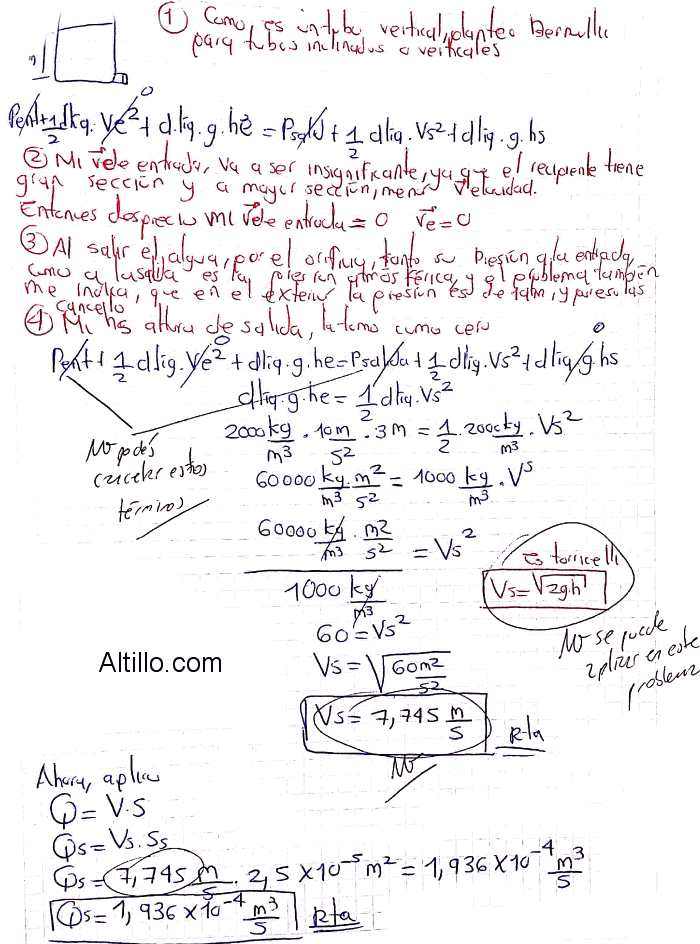 ① Como, es un tubo vertical, planteo Bernulli
para tubos inclinados o verticales
Pent + 1/2 dliq. Ve² + d.liq.g.he = Psalid + 1/2 dliq. Vs² + dliq.g.hs
0
② Mi v de entrada, va a ser insignificante, ya que el recipiente tiene
gran sección y a mayor sección, menor velocidad.
Entonces desprecio mi v de entrada = 0 ve = 0
③ Al salir el agua, por el orificio, tanto su presión a la entrada
como a la salida es la presión atmosférica, y el problema también
me indica, que en el exterior la presión es de 1atm, y por eso las
cancelo
④ Mi hs altura de salida, la tomo como cero
0 0
Pent + 1/2 dliq. Ve² + dliq.g.he = Psalida + 1/2 dliq. Vs² + dliq.g.hs
dliq.g.he = 1/2 dliq. Vs²
2000 kg/m³ . 10 m/s² . 3 m = 1/2 . 2000 kg/m³ . Vs²
No podés
cancelar estos
términos
60000 kg/m³ . m²/s² = 1000 kg/m³ . Vs
60000 kg/m³ . m2/s² / 1000 kg/m³ = Vs²
es torricelli
Vs = √2g.h
No se puede
aplicar en este
problema
60 = Vs²
Altillo.com
Vs = √60 m²/s²
Vs = 7,745 m/s Rta
No
Ahora, aplico
Q = V.S
Qs = Vs. Ss
Qs = 7,745 m/s . 2,5 X 10⁻⁵ m² = 1,936 X 10⁻⁴ m³/s
Qs = 1,936 X 10⁻⁴ m³/s Rta